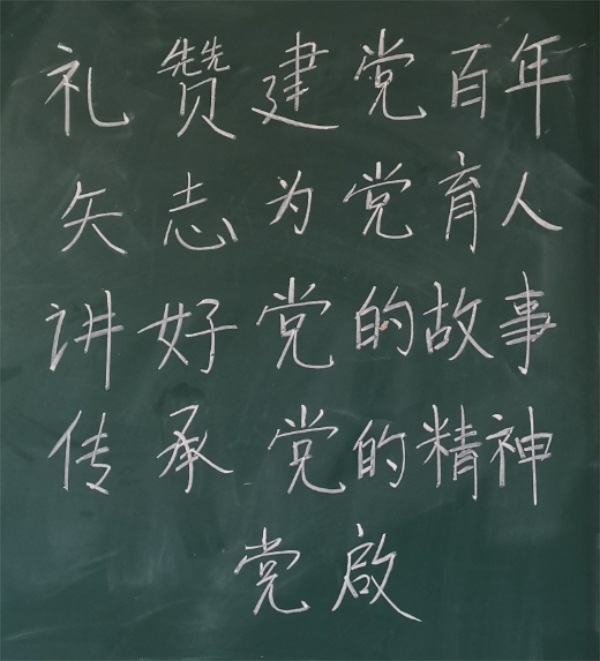 礼赞建党百年
矢志为党育人
讲好党的故事
传承党的精神
党啟